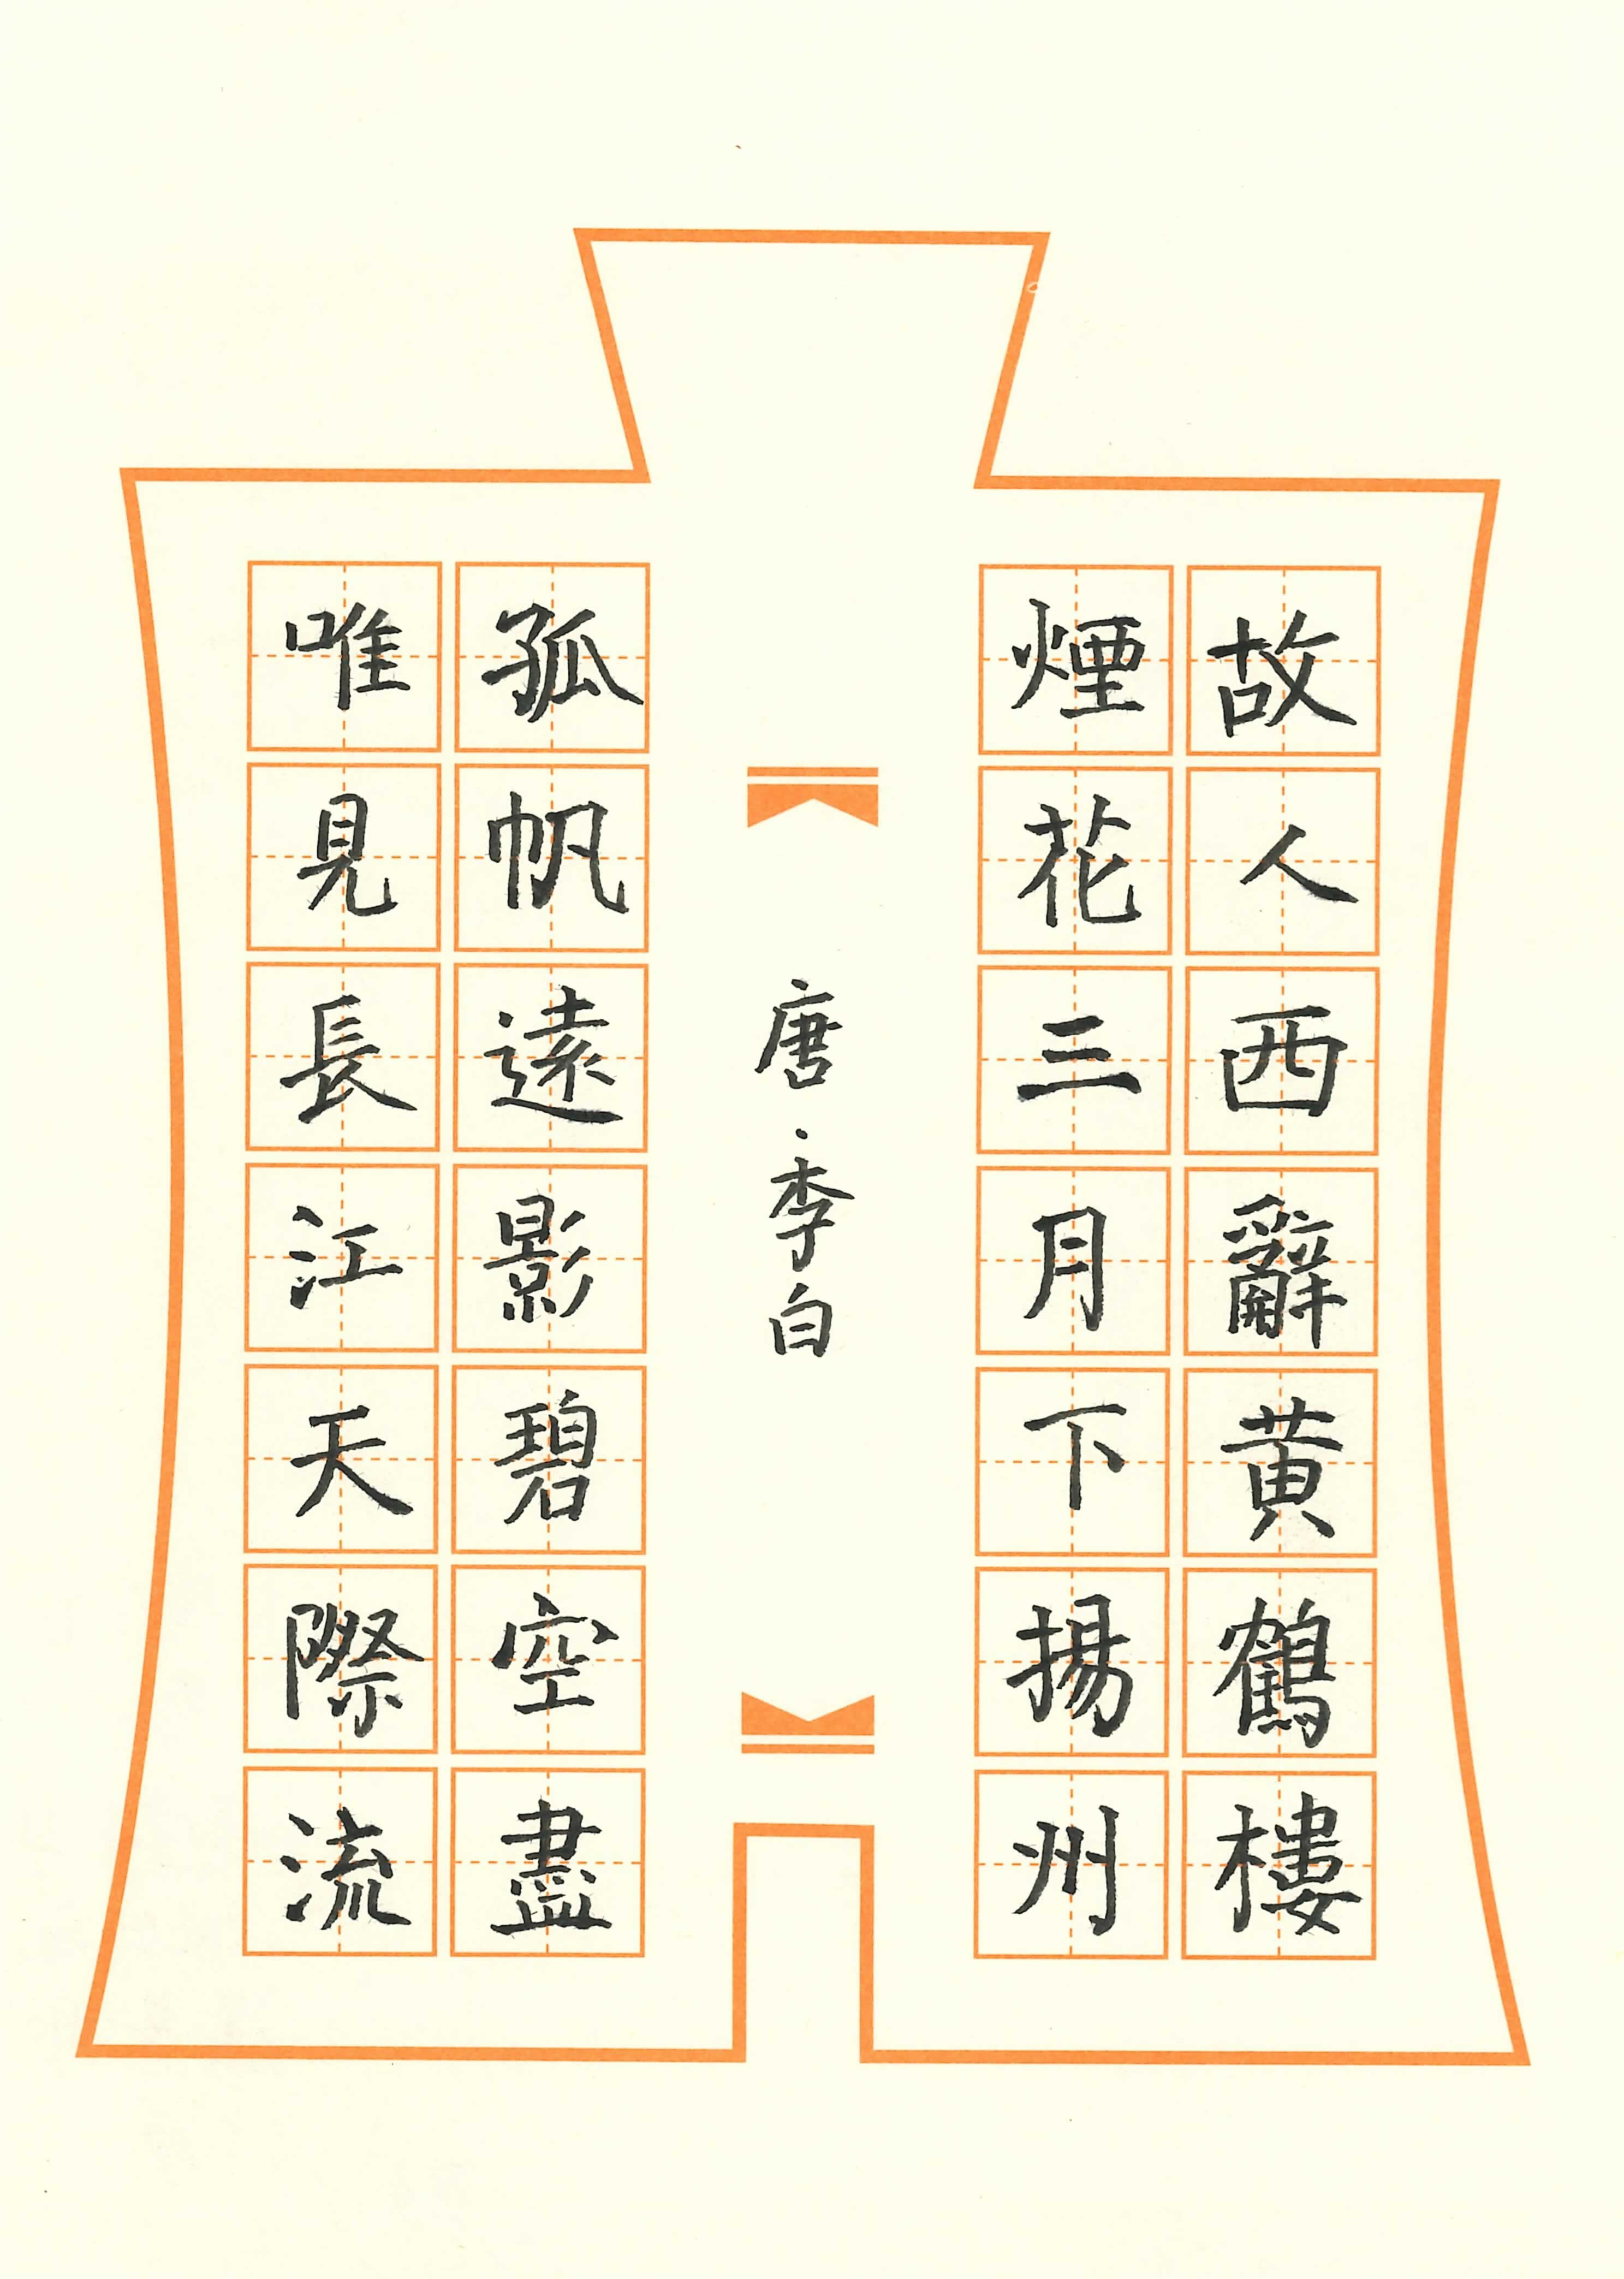 故人西辭黄鶴樓
煙花三月下揚州
唐·李白
孤帆遠影碧空盡
唯見長江天際流